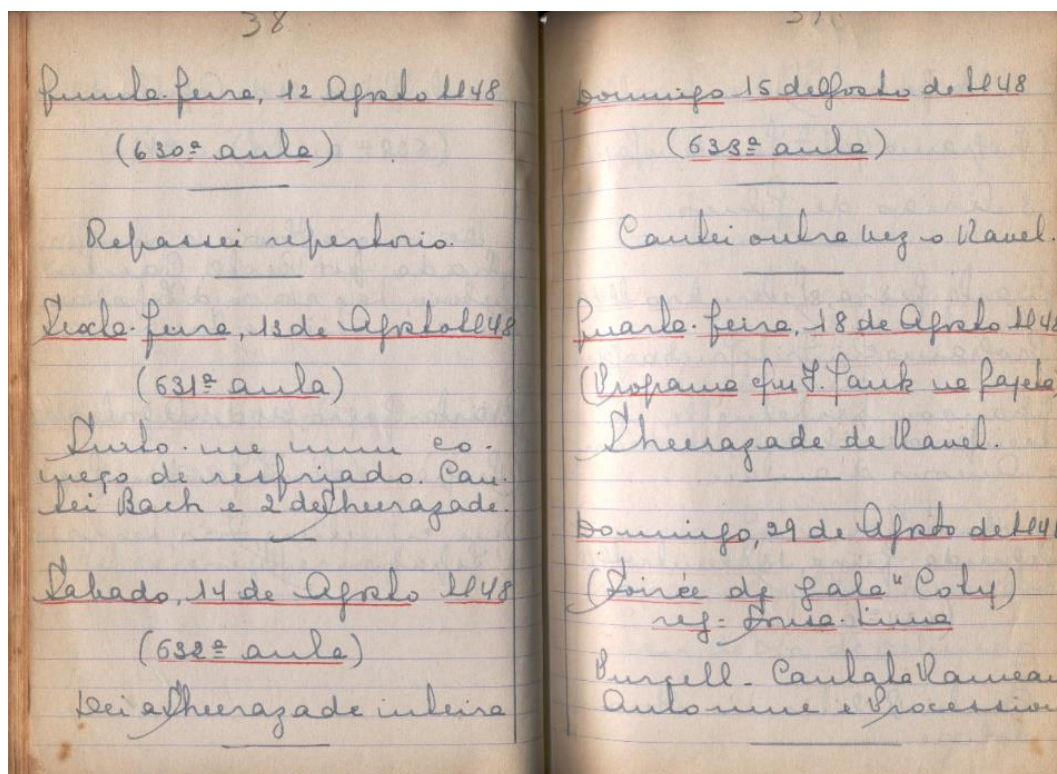 38
Quinta-feira, 12 Agosto 1948
(630ª aula)
Repassei repertorio.
Sexta-feira, 13 de Agosto 1948
(631ª aula)
Sinto-me num co-
meço de resfriado. Can-
tei Bach e 2 de Sheerazade.
Sabado, 14 de Agosto 1948
(632ª aula)
Dei a Sheerazade inteira
Domingo 15 de Agosto de 1948
(633ª aula)
Cantei outra vez o Ravel.
Quarta-feira, 18 de Agosto 194
(Programa na Gazeta
Sheerazade de Ravel.
Domingo, 29 de Agosto de 194
(Soirée de gala "Coty)
reg- Souza-Lima
Purcell- Cantata Rameau
Automne e Procession